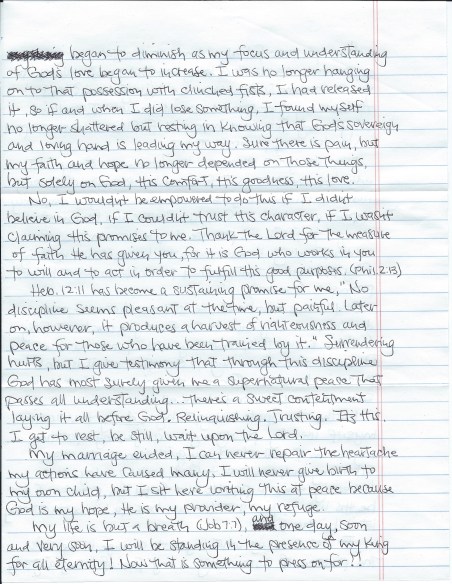 began to diminish as my focus and understanding
of God's love began to increase. I was no longer hanging
on to that possession with clinched fists, I had released
it, so if and when I did lose something, I found myself
no longer shattered but resting in knowing that God's sovereign
and loving hand is leading my way. Sure there is pain, but
my faith and hope no longer depended on those things,
but solely on God, His comfort, His goodness, His love.
No, I wouldn't be empowered to do this if I didn't
believe in God, if I couldn't trust His character, if I wasn't
claiming His promises to me. Thank the Lord for the measure
of faith He has given you, for it is God who works in you
to will and to act in order to fulfill His good purposes. (Phil. 2:13)
Heb. 12:11 has become a sustaining promise for me, "No
discipline seems pleasant at the time, but painful. Later
on, however, it produces a harvest of righteousness and
peace for those who have been trained by it." Surrendering
hurts, but I give testimony that through this discipline
God has most surely given me a supernatural peace that
passes all understanding... There's a sweet contentment
laying it all before God. Relinquishing. Trusting. It's His.
I get to rest, be still, wait upon the Lord.
My marriage ended, I can never repair the heartache
my actions have caused many. I will never give birth to
my own child, but I sit here writing this at peace because
God is my hope, He is my provider, my refuge.
My life is but a breath (Job 7:7), and one day, soon
and very soon, I will be standing in the presence of my King
for all eternity! Now that is something to press on for!!